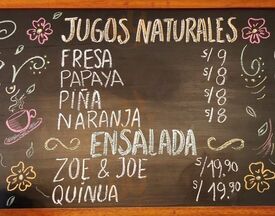 JUGOS NATURALES
FRESA S/9
PAPAYA S/8
PIÑA S/8
NARANJA S/8
ENSALADA
ZOE & JOE S/19.90
QUINUA S/19.90